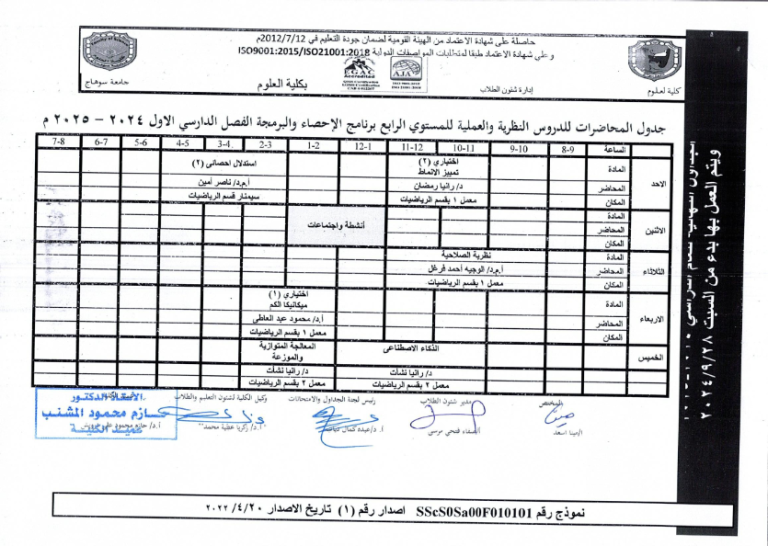 حاصلة على شهادة الاعتماد من الهيئة القومية لضمان جودة التعليم في 2012/7/12م
وعلى شهادة الاعتماد طبقا لمتطلبات المواصفات الدولية ISO9001:2015/ISO21001:2018
كلية العلوم
إدارة شئون الطلاب
EGAC
Accredited
AJA
بكلية العلوم
جامعة سوهاج
جدول المحاضرات للدروس النظرية والعملية للمستوي الرابع برنامج الإحصاء والبرمجة الفصل الدارسي الاول ٢٠٢٤ – ٢٠٢٥ م
الساعة 8-9 9-10 10-11 11-12 12-1 1-2 3-2 3-4 4-5 5-6 6-7 7-8
الاحد
المادة
اختياري (٢)
تمييز الانماط
استدلال احصائى (٢)
المحاضر
د/ رانيا رمضان
أ.م.د/ ناصر أمين
المكان
معمل ١ بقسم الرياضيات
سيمنار قسم الرياضيات
الاثنين
المادة
المحاضر
المكان
أنشطة واجتماعات
الثلاثاء
المادة
نظرية الصلاحية
المحاضر
أ.م.د/ الوجيه أحمد فرغل
المكان
معمل ١ بقسم الرياضيات
الاربعاء
المادة
اختياري (١)
ميكاليكا الكم
المحاضر
أ.د/ محمود عبد العاطي
المكان
معمل ١ بقسم الرياضيات
الخميس
الذكاء الاصطناعى
المعالجة المتوازية
والموزعة
د/ رانيا نشأت
د/ رانيا نشأت
معمل ٢ بقسم الرياضيات
معمل ٢ بقسم الرياضيات
المختص
مدير شئون الطلاب
رئيس لجنة الجداول والامتحانات
وكيل الكلية لشئون التعليم والطلاب
أ.د/ زكريا عطية محمد
الأستاذ الدكتور
حازم محمود المشنب
عميد الكلية
ويتم العمل بها بدء من السبت ٢٠٢٤/٩/٢٨
نموذج رقم SScS0Sa00F010101 اصدار رقم (١) تاريخ الاصدار ٢٠٢٢/٤/٢٠